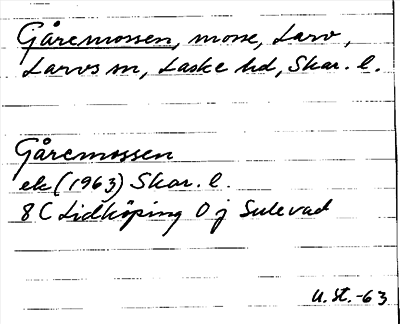 Gåremossen, mosse, Larv,
Larvs sn, Laske hd, Skar. l.
Gåremossen
ek (1963) Skar. l.
8C Lidköping 0 j Sulevad
U. St. -63